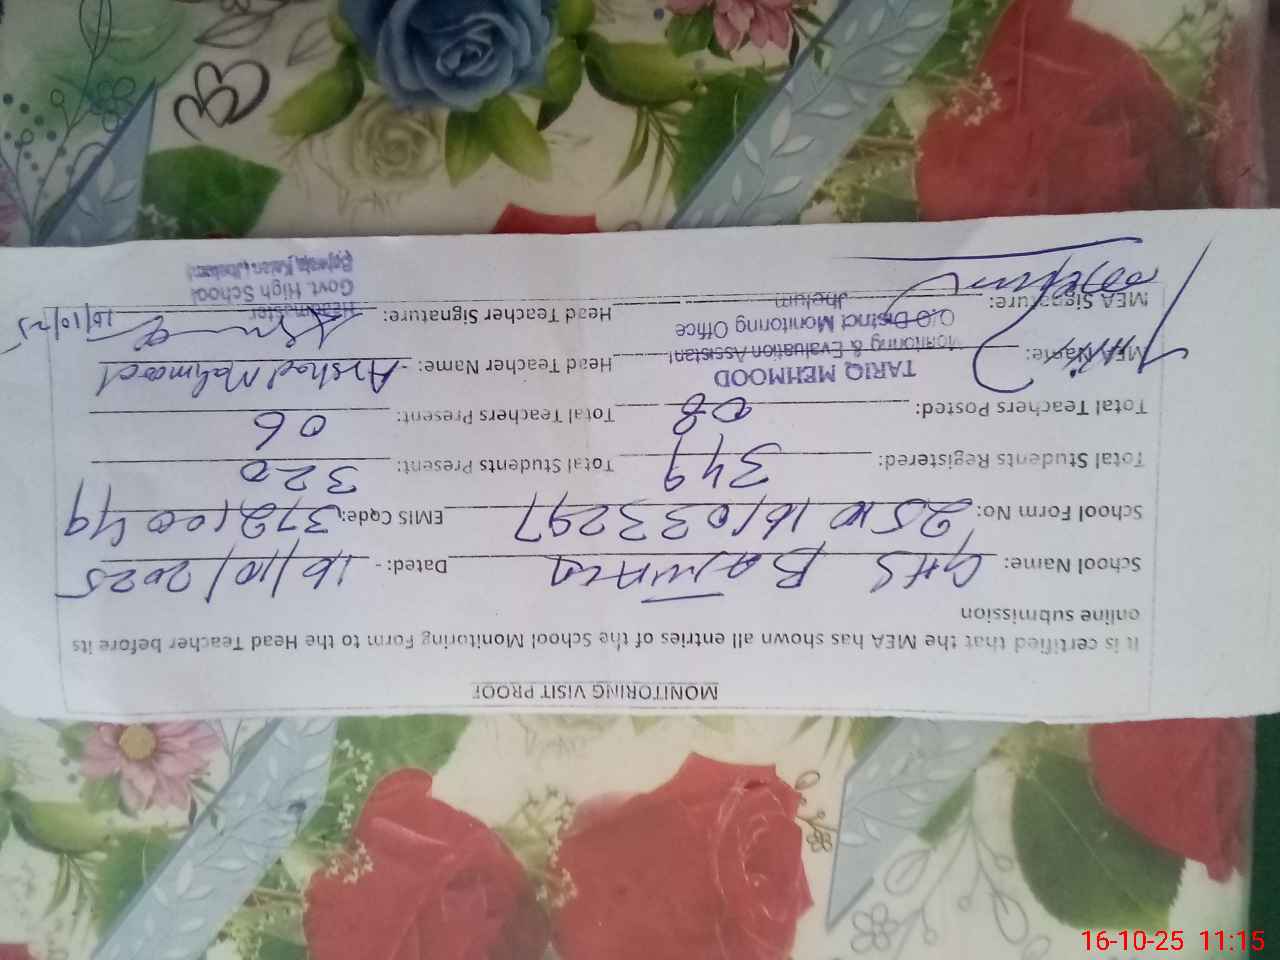 MONITORING VISIT PROOF
It is certified that the MEA has shown all entries of the School Monitoring Form to the Head Teacher before its
online submission
School Name: GHS Bajwala Dated: - 16/10/2025
School Form No: 2510161033297 EMIS Code: 37210049
Total Students Registered: 349 Total Students Present: 320
Total Teachers Posted: 08 Total Teachers Present: 06
TARIQ MEHMOOD
MEA Name: Monitoring & Evaluation Assistant Head Teacher Name: - Arshad Mahmood
O/O District Monitoring Office
Jhelum
MEA Signature: Head Teacher Signature: 16/10/25
Headmaster
Govt. High School
Kalan (Jhelum)
16-10-25 11:15